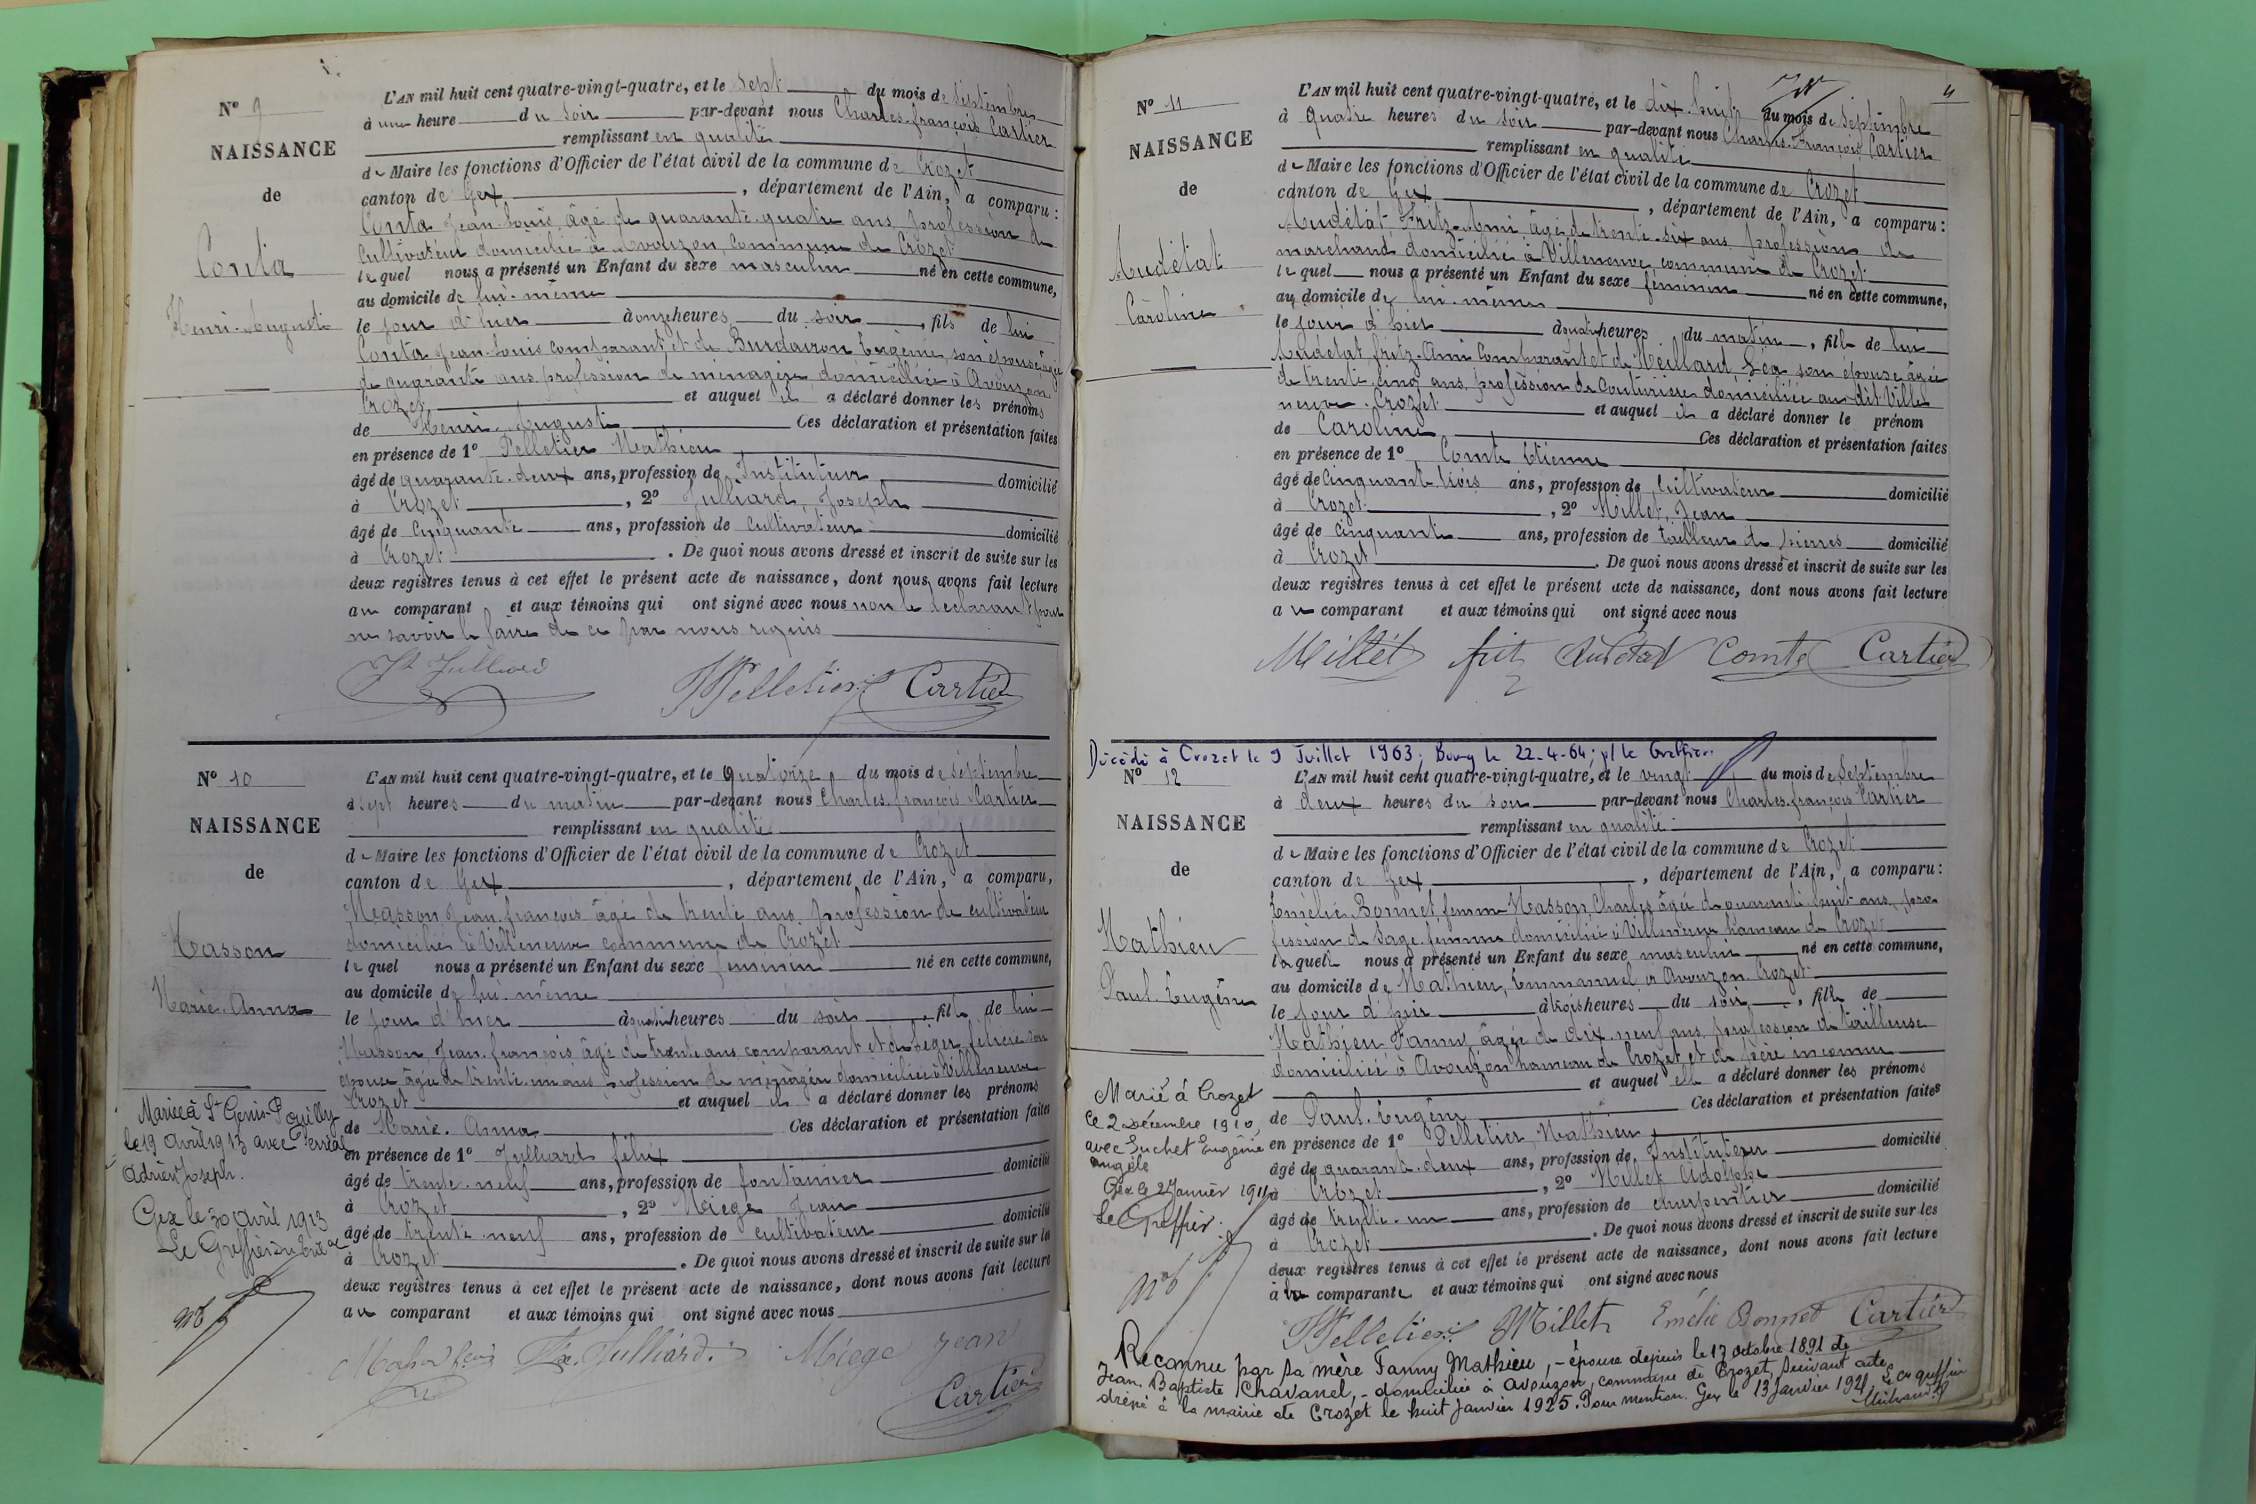 N° 9
NAISSANCE
de
Conta
Henri-Auguste
L'AN mil huit cent quatre-vingt-quatre, et le Sept du mois de Septembre
à une heure du Soir par-devant nous Charles-françois Cartier
remplissant en qualité
de Maire les fonctions d'Officier de l'état civil de la commune de Crozet
canton de Gex, département de l'Ain, a comparu:
Conta Jean-Louis âgé de quarante-quatre ans, profession de
Cultivateur domicilié à Avouzon, commune de Crozet
lequel nous a présenté un Enfant du sexe masculin né en cette commune,
au domicile de lui-même
le jour d'hier à onze heures du soir, fils de lui
Conta Jean-Louis comparant, et de Burdairon Eugénie, son épouse, âgée
de quarante ans, profession de ménagère domiciliée à Avouzon
Crozet et auquel il a déclaré donner les prénoms
de Henri-Auguste Ces déclaration et présentation faites
en présence de 1° Pelletier Mathieu
âgé de quarante-deux ans, profession de Instituteur domicilié
à Crozet, 2° Julliard, Joseph
âgé de Cinquante ans, profession de cultivateur domicilié
à Crozet. De quoi nous avons dressé et inscrit de suite sur les
deux registres tenus à cet effet le présent acte de naissance, dont nous avons fait lecture
au comparant et aux témoins qui ont signé avec nous non le déclarant pour
ne savoir le faire de ce par nous requis
Jh Julliard Pelletier Cartier
N° 10
NAISSANCE
de
Masson
Marie-Anna
Mariée à St Genis-Pouilly
le 19 avril 1913 avec
Adrien Joseph.
Gex le 30 avril 1913
Le Greffier
L'AN mil huit cent quatre-vingt-quatre, et le quatorze du mois de Septembre
à sept heures du matin par-devant nous Charles-françois Cartier
remplissant en qualité
de Maire les fonctions d'Officier de l'état civil de la commune de Crozet
canton de Gex, département de l'Ain, a comparu,
Masson Jean-françois âgé de trente ans, profession de cultivateur
domicilié à Villeneuve commune de Crozet
lequel nous a présenté un Enfant du sexe féminin né en cette commune,
au domicile de lui-même
le jour d'hier à quatre heures du soir, fille de lui
Masson Jean-françois âgé de trente ans comparant et de Léger félicie son
épouse âgée de trente-un ans profession de ménagère domiciliée à Villeneuve
Crozet et auquel il a déclaré donner les prénoms
de Marie-Anna Ces déclaration et présentation faites
en présence de 1° Julliard félix
âgé de trente-neuf ans, profession de fontainier domicilié
à Crozet, 2° Miège Jean
âgé de trente-neuf ans, profession de cultivateur domicilié
à Crozet. De quoi nous avons dressé et inscrit de suite sur les
deux registres tenus à cet effet le présent acte de naissance, dont nous avons fait lecture
au comparant et aux témoins qui ont signé avec nous
Julliard Miege Jean
Cartier
4
N° 11
NAISSANCE
de
Audétat
Caroline
L'AN mil huit cent quatre-vingt-quatre, et le dix-huit du mois de Septembre
à quatre heures du soir par-devant nous Charles-François Cartier
remplissant en qualité
de Maire les fonctions d'Officier de l'état civil de la commune de Crozet
canton de Gex, département de l'Ain, a comparu:
Audétat Fritz-Ami âgé de trente-six ans, profession de
marchand domicilié à Villeneuve, commune de Crozet
lequel nous a présenté un Enfant du sexe féminin né en cette commune,
au domicile de lui-même
le jour d'hier à quatre heures du matin, fille de lui
Audétat, fritz-Ami comparant et de Meillard Léa son épouse âgée
de trente-cinq ans, profession de Couturière domiciliée au dit Ville-
neuve-Crozet et auquel il a déclaré donner le prénom
de Caroline Ces déclaration et présentation faites
en présence de 1° Comte Etienne
âgé de Cinquante-trois ans, profession de Cultivateur domicilié
à Crozet, 2° Millet, Jean
âgé de Cinquante ans, profession de tailleur de pierres domicilié
à Crozet. De quoi nous avons dressé et inscrit de suite sur les
deux registres tenus à cet effet le présent acte de naissance, dont nous avons fait lecture
au comparant et aux témoins qui ont signé avec nous
Millet fritz Audétat Comte Cartier
Décédé à Crozet le 9 Juillet 1963; Bourg le 22-4-64; p/ le Greffier.
N° 12
NAISSANCE
de
Mathieu
Paul-Eugène
Marié à Crozet
le 2 Décembre 1910,
avec Suchet Eugénie
Angèle
Gex le 2 Janvier 1911
Le Greffier.
L'AN mil huit cent quatre-vingt-quatre, et le vingt du mois de Septembre
à deux heures du soir par-devant nous Charles-françois Cartier
remplissant en qualité
de Maire les fonctions d'Officier de l'état civil de la commune de Crozet
canton de Gex, département de l'Ain, a comparu:
Emélie Bonnet femme Masson Charles âgée de quarante-huit ans, pro-
fession de Sage-femme domiciliée à Villeneuve hameau de Crozet
laquelle nous a présenté un Enfant du sexe masculin né en cette commune,
au domicile de Mathieu, Emmanuel à Avouzon-Crozet
le jour d'hier à trois heures du soir, fille de
Mathieu Fanny âgée de dix-neuf ans, profession de tailleuse
domiciliée à Avouzon hameau de Crozet et de père inconnu
et auquel elle a déclaré donner les prénoms
de Paul-Eugène Ces déclaration et présentation faites
en présence de 1° Pelletier, Mathieu
âgé de quarante-deux ans, profession de Instituteur domicilié
à Crozet, 2° Millet Adolphe
âgé de trente-un ans, profession de charpentier domicilié
à Crozet. De quoi nous avons dressé et inscrit de suite sur les
deux registres tenus à cet effet le présent acte de naissance, dont nous avons fait lecture
à la comparante et aux témoins qui ont signé avec nous
Pelletier Millet Emélie Bonnet Cartier
Reconnu par sa mère Fanny Mathieu, - épouse depuis le 17 octobre 1891 de
Jean-Baptiste Chavanel, - domiciliée à Avouzon, commune de Crozet, suivant acte
dressé à la mairie de Crozet le huit Janvier 1925. Pour mention. Gex le 13 Janvier